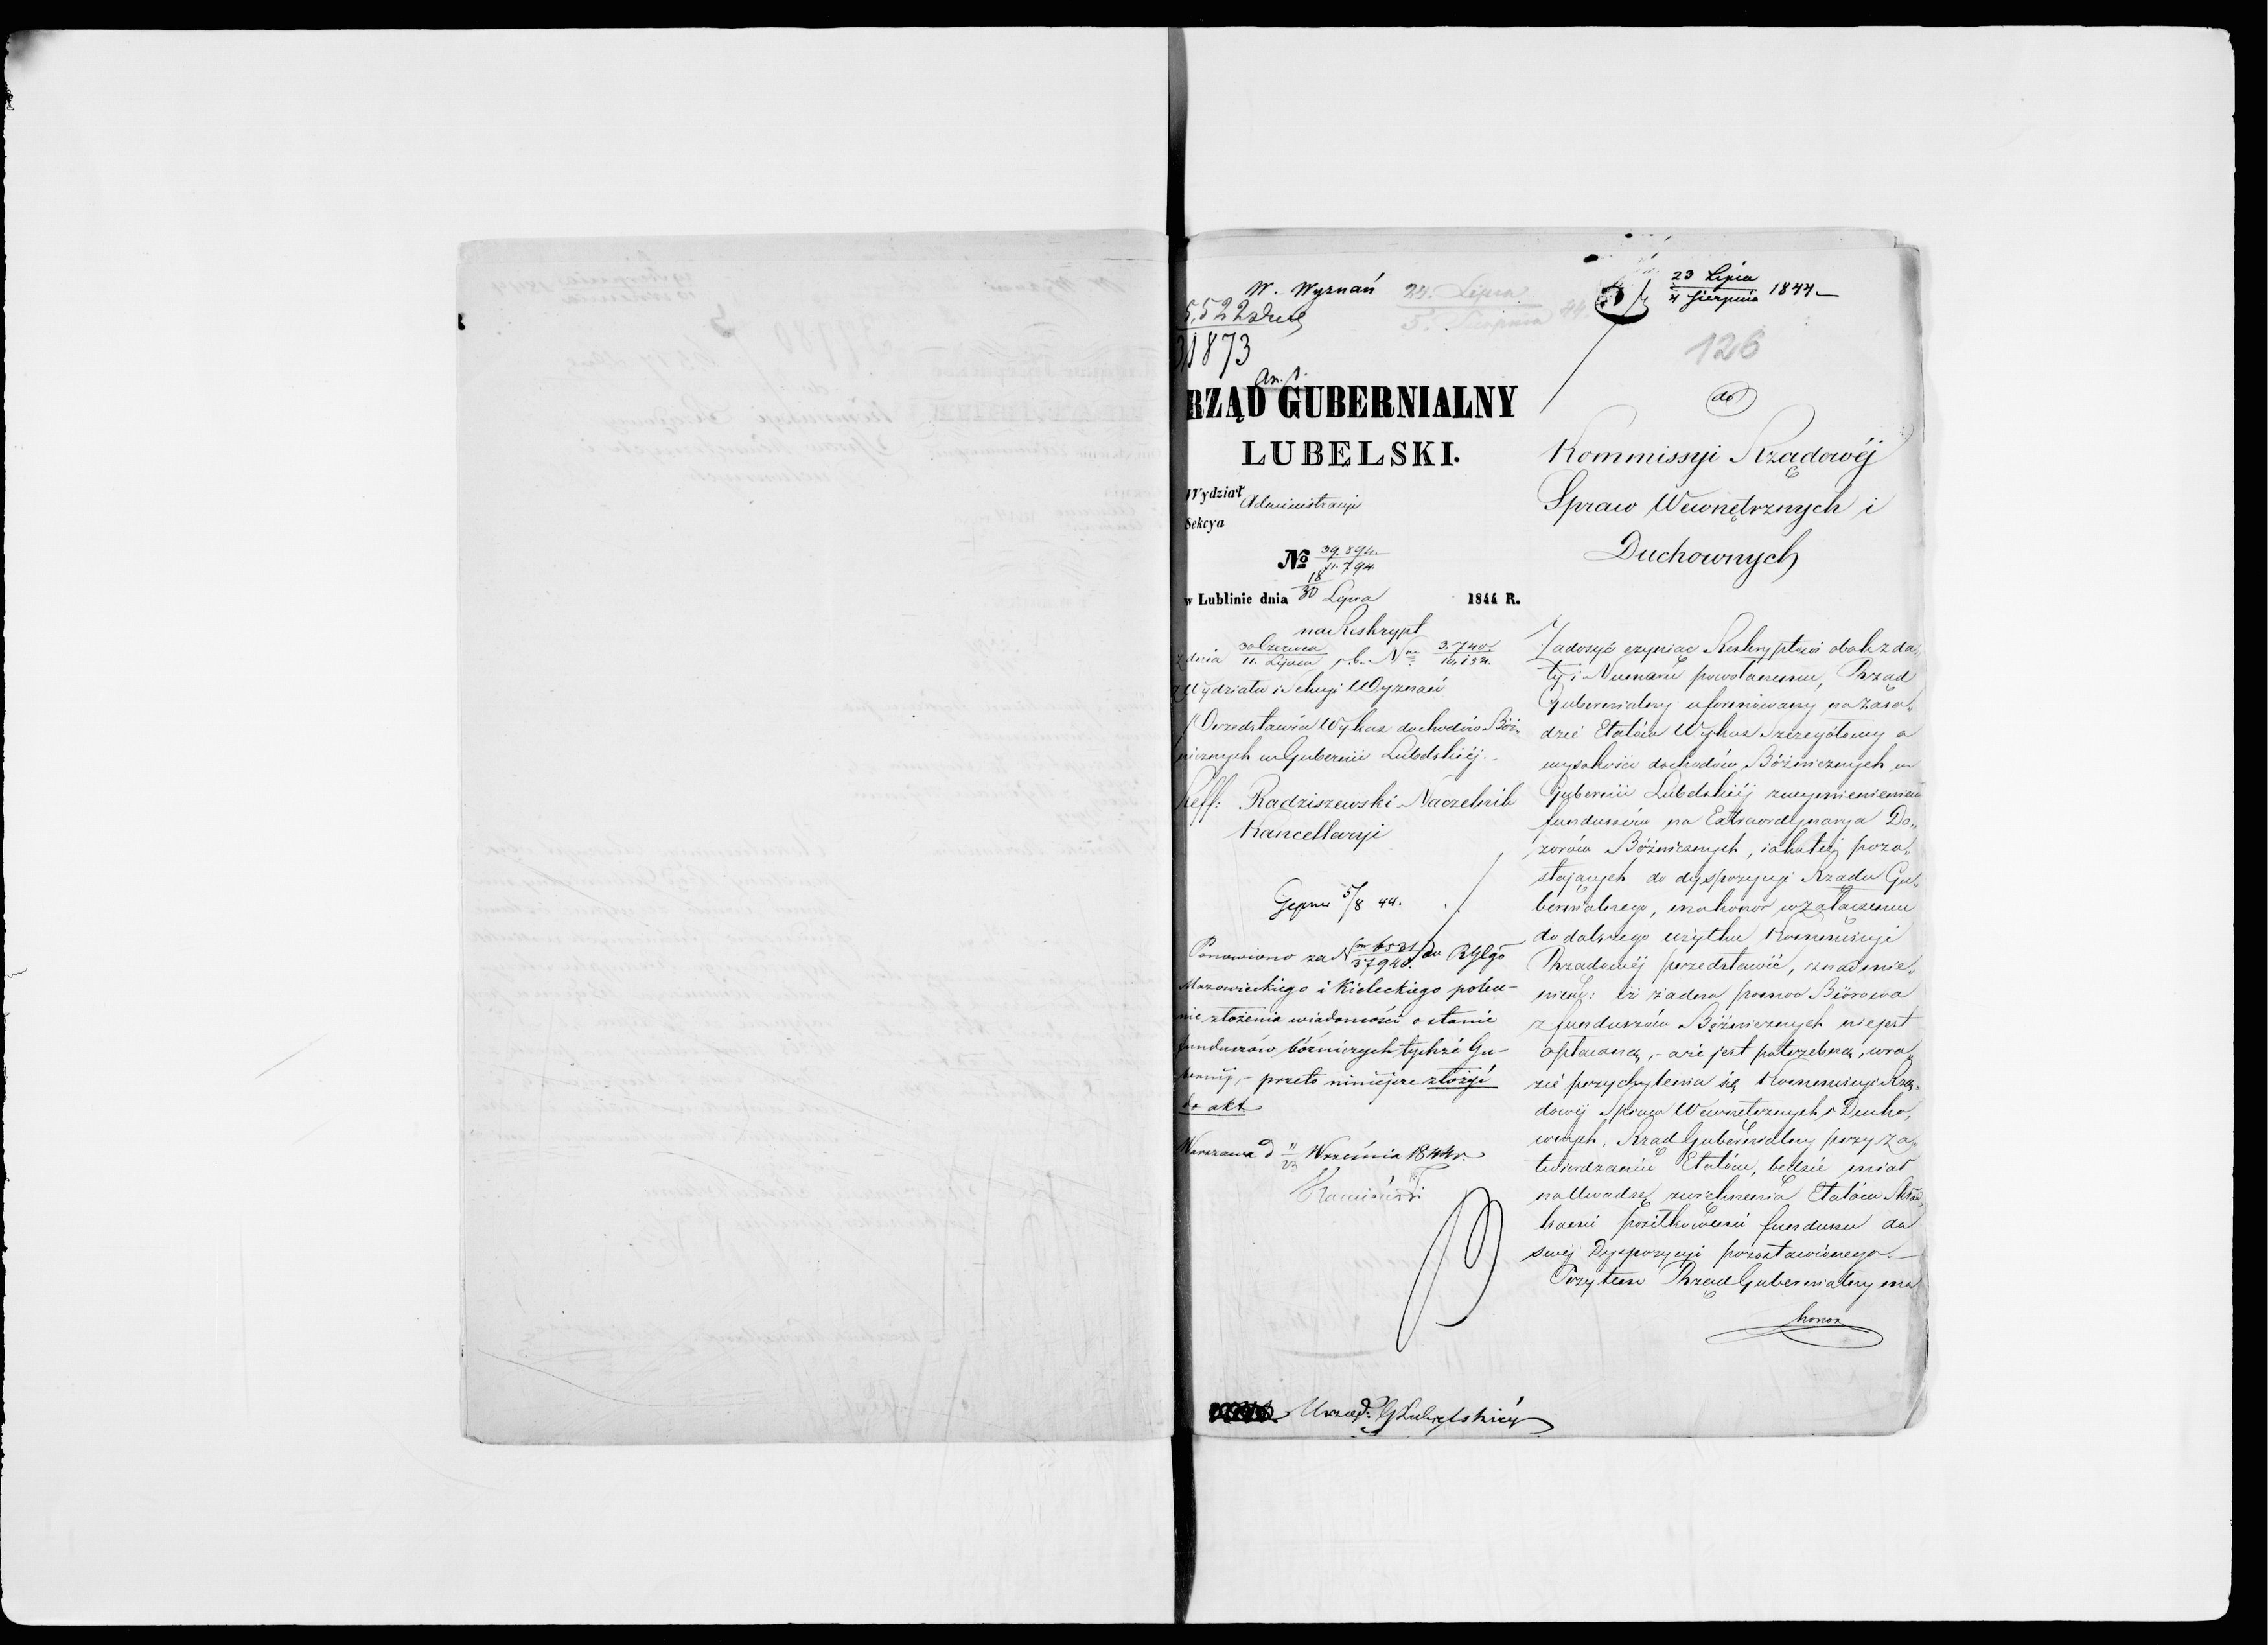 W. Wyznań
24. Lipca
5. Sierpnia 44
23 Lipca
4 Sierpnia 1844
5,522
31873
An. 1.
126
RZĄD GUBERNIALNY
LUBELSKI.
Wydział Administracyi
Sekcya
No 39.894.
11.794.
w Lublinie dnia 18/30 Lipca 1844 R.
na Reskrypt
z dnia 30 Czerwca / 11. Lipca r.b. N
z Wydziału i Sekcyi Wyznań
Przedstawia Wykaz dochodów Bóż„
nicznych w Gubernii Lubelskiéj.
Reff: Radziszewski Naczelnik
Kancellaryi
5/8 44.
Ponowiono za N 6521/37940. do RGlgo
Mazowieckiego i Kieleckiego polece-
nie złożenia wiadomości o stanie
funduszów bóżniczych tychże Gu-
bernij, – przeto niniejsze złożyć
do akt
Warszawa d 11/23 Września 1844 r.
Kamiński
do
Kommissyi Rządowéj
Spraw Wewnętrznych i
Duchownych
Zadosyć czyniąc Reskryptowi obok z da„
ty i Numeru powołanemu, Rząd
Gubernialny uformowany na zasa„
dzie Etatów Wykaz Szczegółowy o
wysokości dochodów Bóżnicznych w
Gubernii Lubelskiéj z wymienieniem
funduszów na Extraordynarya Do„
zorów Bóżnicznych, jakoteż pozo„
stających do dyspozycyi Rządu Gu„
bernialnego, ma honor w załączeniu
do dalszego użytku Kommissyi
Rządowéj przedstawić, z nadmie„
nieniem: iż żadna pomoc Biórowa
z funduszów Bóżnicznych nie jest
opłacaną, – a że jest potrzebną, w ra„
zie przychylenia się Kommissyi Rzą„
dowéj Spraw Wewnętrznych i Ducho„
wnych, Rząd Gubernialny przy za„
twierdzaniu Etatów, będzie miał
na Uwadze
funduszu do
swéj Dyspozycyi pozostawionego. –
Przytem Rząd Gubernialny ma
honor